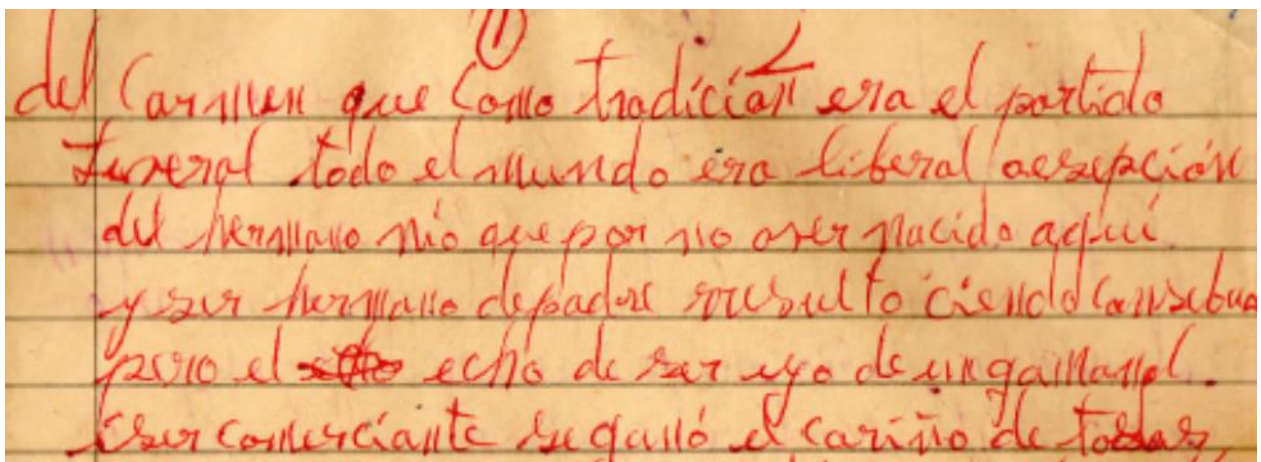 ①
del Carmen que como tradición era el partido
liveral todo el mundo era liberal aesepción
del hermano mío que por no aver nacido aquí
y ser hermano depadre rresulto ciendo
pero el echo de ser uyo de un gamanal.
i ser comerciante se ganó el cariño de todos,